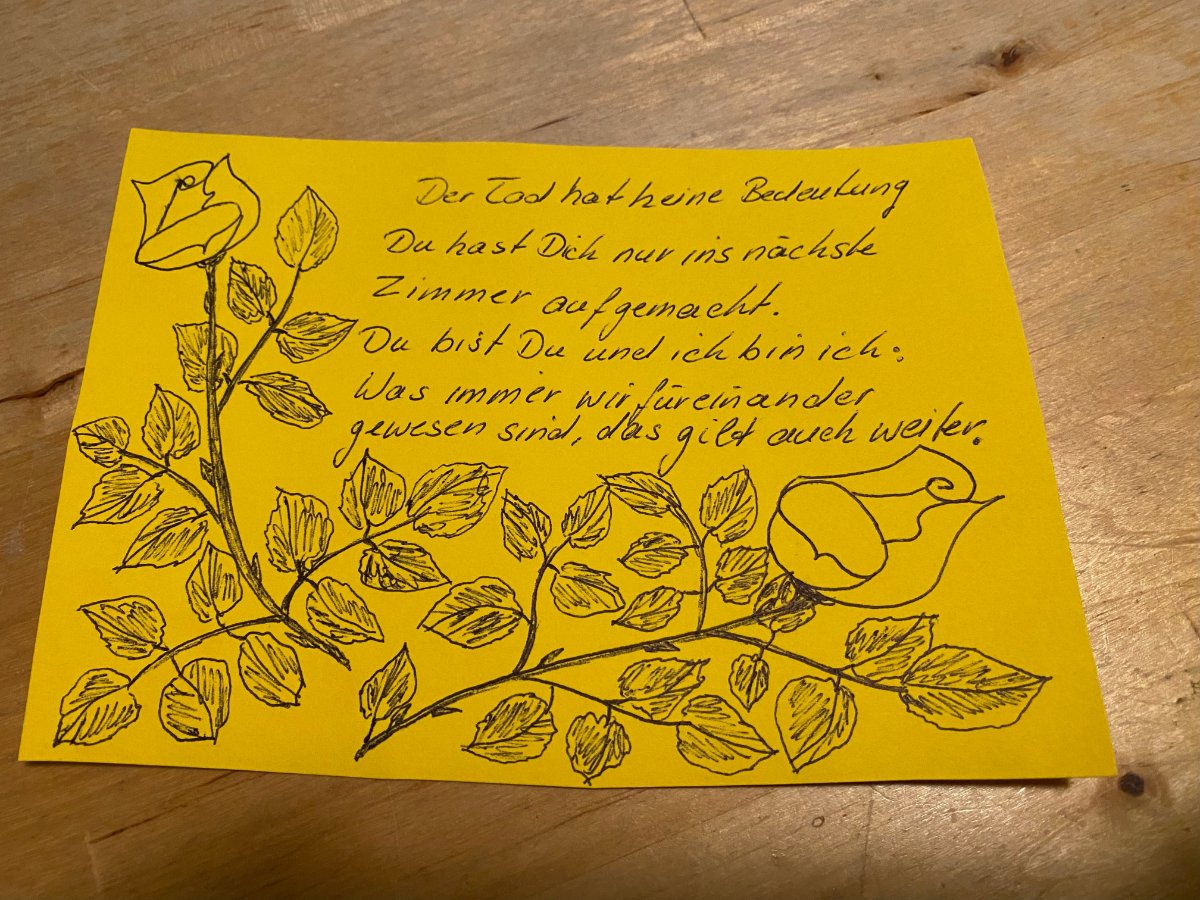 Der Tod hat keine Bedeutung
Du hast Dich nur ins nächste
Zimmer aufgemacht.
Du bist Du und ich bin ich:
Was immer wir füreinander
gewesen sind, das gilt auch weiter.